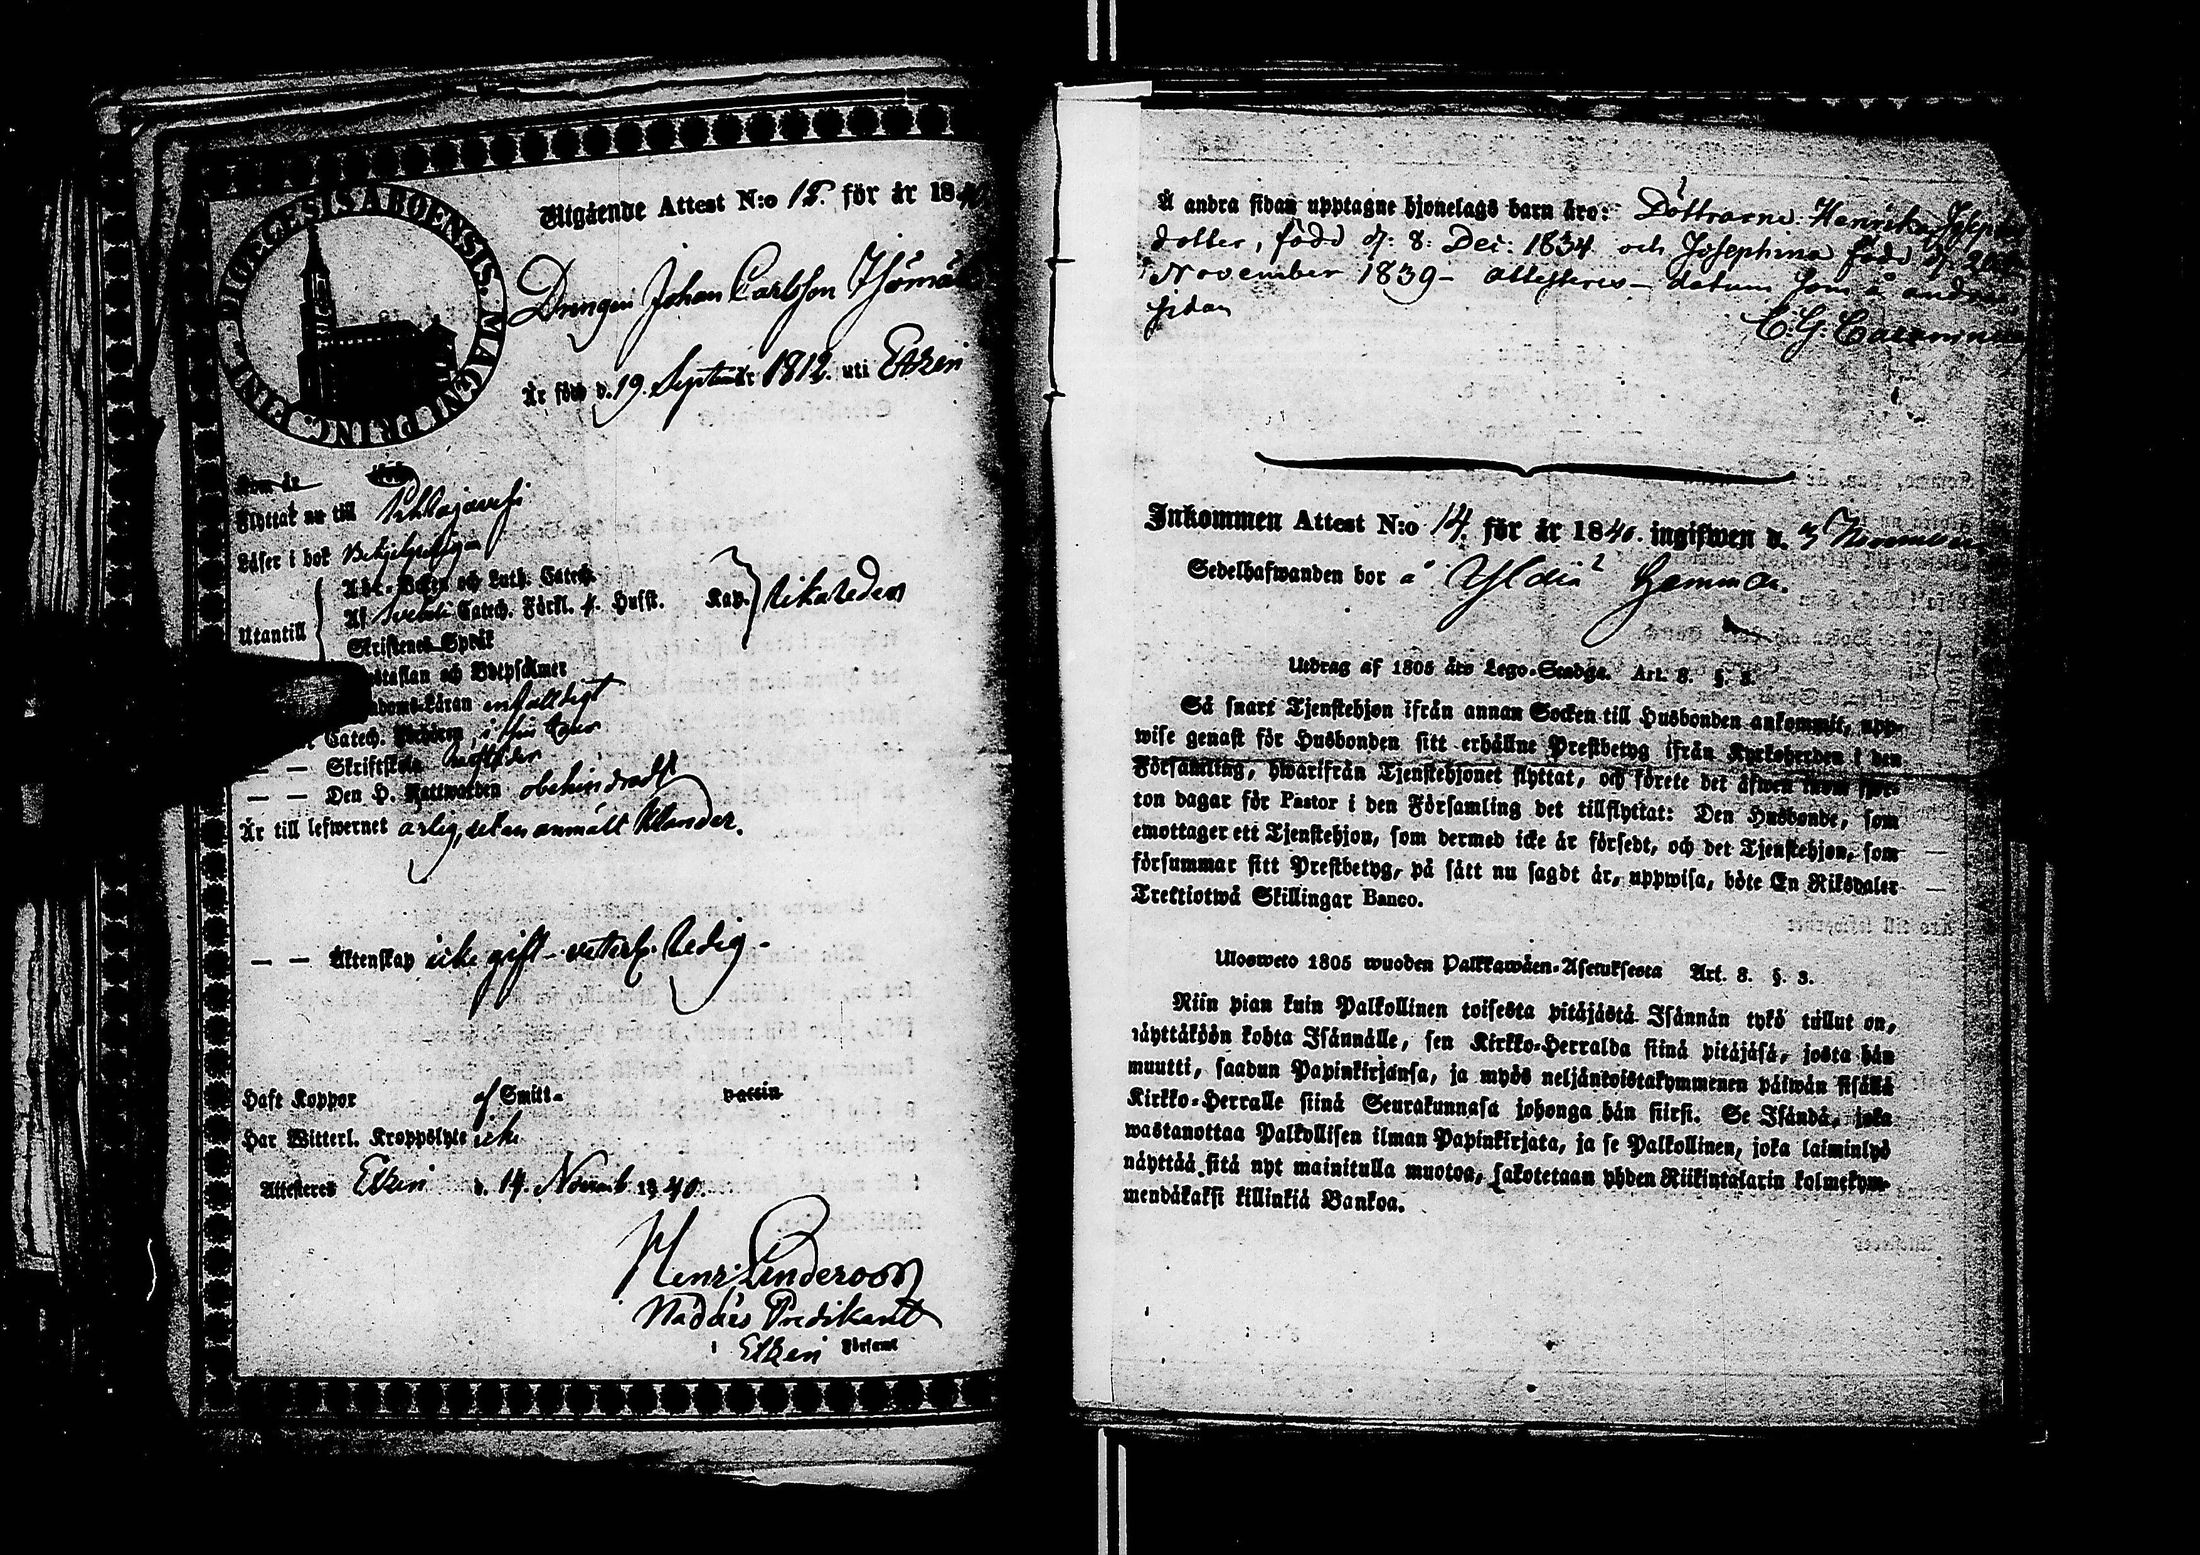 DIOECESIS ABOENSIS. MAGNI PRINC. FINL.
Utgående Attest N:o 15. för år 1840
Drengen Johan Carlsson
Är född d. 19. September 1812. uti Etzeri
Flyttat nu till Pihlajavesi
Läser i bok
Utantill
Abc-Boken och Luth. Catech.
Af Svebilii Catech. Förkl. Hust. Kap.
Skriftenes Språk
och Botpsalmer
Läran enfalldigt
Catech. Förhören
— — Skriftskola
— — Den H. Nattwarden obehindradt
Är till lefwernet ärlig, utan anmält klander.
— — Äktenskap icke gift - ledig -
Haft Koppor af Smitt-
vaccin
Har Witterl. Kroppslyte icke
Attesteras Etzeri d. 14. Novemb. 1840.
Henr.
Nådårs Predikant
i Etzeri Församl
Å andra sidan upptagne hjonelags barn äro: Döttrarne Henrika Josephs
dotter, född d: 8: Dec: 1834 och Josephina född d
November 1839 - attesteras - datum som å andra
sidan
C. G.
Inkommen Attest N:o 14. för år 1840. ingifwen d. 3 November
Sedelhafwanden bor å
Utdrag af 1805 års Lego-Stadga. Art. 8. §. 3.
Så snart Tjenstehjon ifrån annan Socken till Husbonden ankommit, upp-
wise genast för Husbonden sitt erhållne Prestbetyg ifrån Kyrkoherden i den
Församling, hwarifrån Tjenstehjonet flyttat, och förete det äfwen inom fjor-
ton dagar för Pastor i den Församling det tillflyttat: Den Husbonde, som
emottager ett Tjenstehjon, som dermed icke är försedt, och det Tjenstehjon, som
försummar sitt Prestbetyg, på sätt nu sagdt är, uppwisa, böte En Riksdaler
Trettiotwå Skillingar Banco.
Ulosweto 1805 wuoden Palkkawäen-Asetuksesta Art. 8. §. 3.
Niin pian kuin Palkollinen toisesta pitäjästä Isännän tykö tullut on,
näyttäköön kohta Isännälle, sen Kirkko-Herralda siinä pitäjäsä, josta hän
muutti, saadun Papinkirjansa, ja myös neljäntoistakymmenen päiwän sisällä
Kirkko-Herralle siinä Seurakunnasa johonga hän siirsi. Se Isändä, joka
wastanottaa Palkollisen ilman Papinkirjata, ja se Palkollinen, joka laiminlyö
näyttää sitä nyt mainitulla muotoa, sakotetaan yhden Riikintalarin kolmekym-
mendäkaksi killinkiä Bankoa.